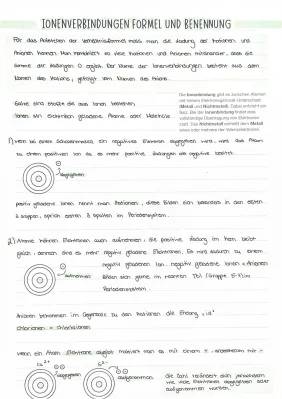 IONENVERBINDUNGEN FORMEL UND BENENNUNG
Für das Aufstellen der Verhältnisformel muss man die Ladung der Kationen und
Anionen kennen. Man kombiniert so viele Kationen und Anionen miteinander, dass die
Summe der Ladungen 0 ergibt. Der Name der Ionenverbindungen besteht aus dem
Namen des Kations, gefolgt vom Namen des Anions.
Salze sind Stoffe die aus Ionen bestehen,
Ionen sind elektrisch geladene Atome oder Moleküle
Die Ionenbindung gibt es zwischen Atomen
mit hohem Elektronegativität Unterschied
(Metall und Nichtmetall).
Bei der Ionenbindung findet eine
vollständige Übertragung von Elektronen
statt. Das Nichtmetall entreißt dem Metall
eines oder mehrere der Valenzelektronen.
1) wenn bei einem ein negatives Elektron abgegeben wird, wird das Atom
zu einem positiven Ion da es mehr positive Ladungen als negative besitzt.
abgegeben
positiv geladene Ionen nennt man Kationen, diese bilden sich besonders in den ersten
3 Gruppen, sprich ersten 3 Spalten im Periodensystem.
2) Atome können Elektronen auch aufnehmen, die positive Ladung im Kern bleibt
gleich, dennoch sind es mehr negative Elektronen. Es wird dadurch zu einem
negativ geladenen Ion. negativ geladene Ionen = Anionen
aufnehmen
Bilden sich gerne im rechten Teil (Gruppe 5-7) im
Periodensystem.
Anionen bekommen im Gegensatz zu den Kationen die Endung "id"
Chloranionen = Chloridionen
wenn ein Atom Elektrone abgibt notiert man es mit einem +, andersrum mit -
abgegeben
aufgenommen
die Zahl
wie viele Elektronen abgegeben oder
aufgenommen wurden.